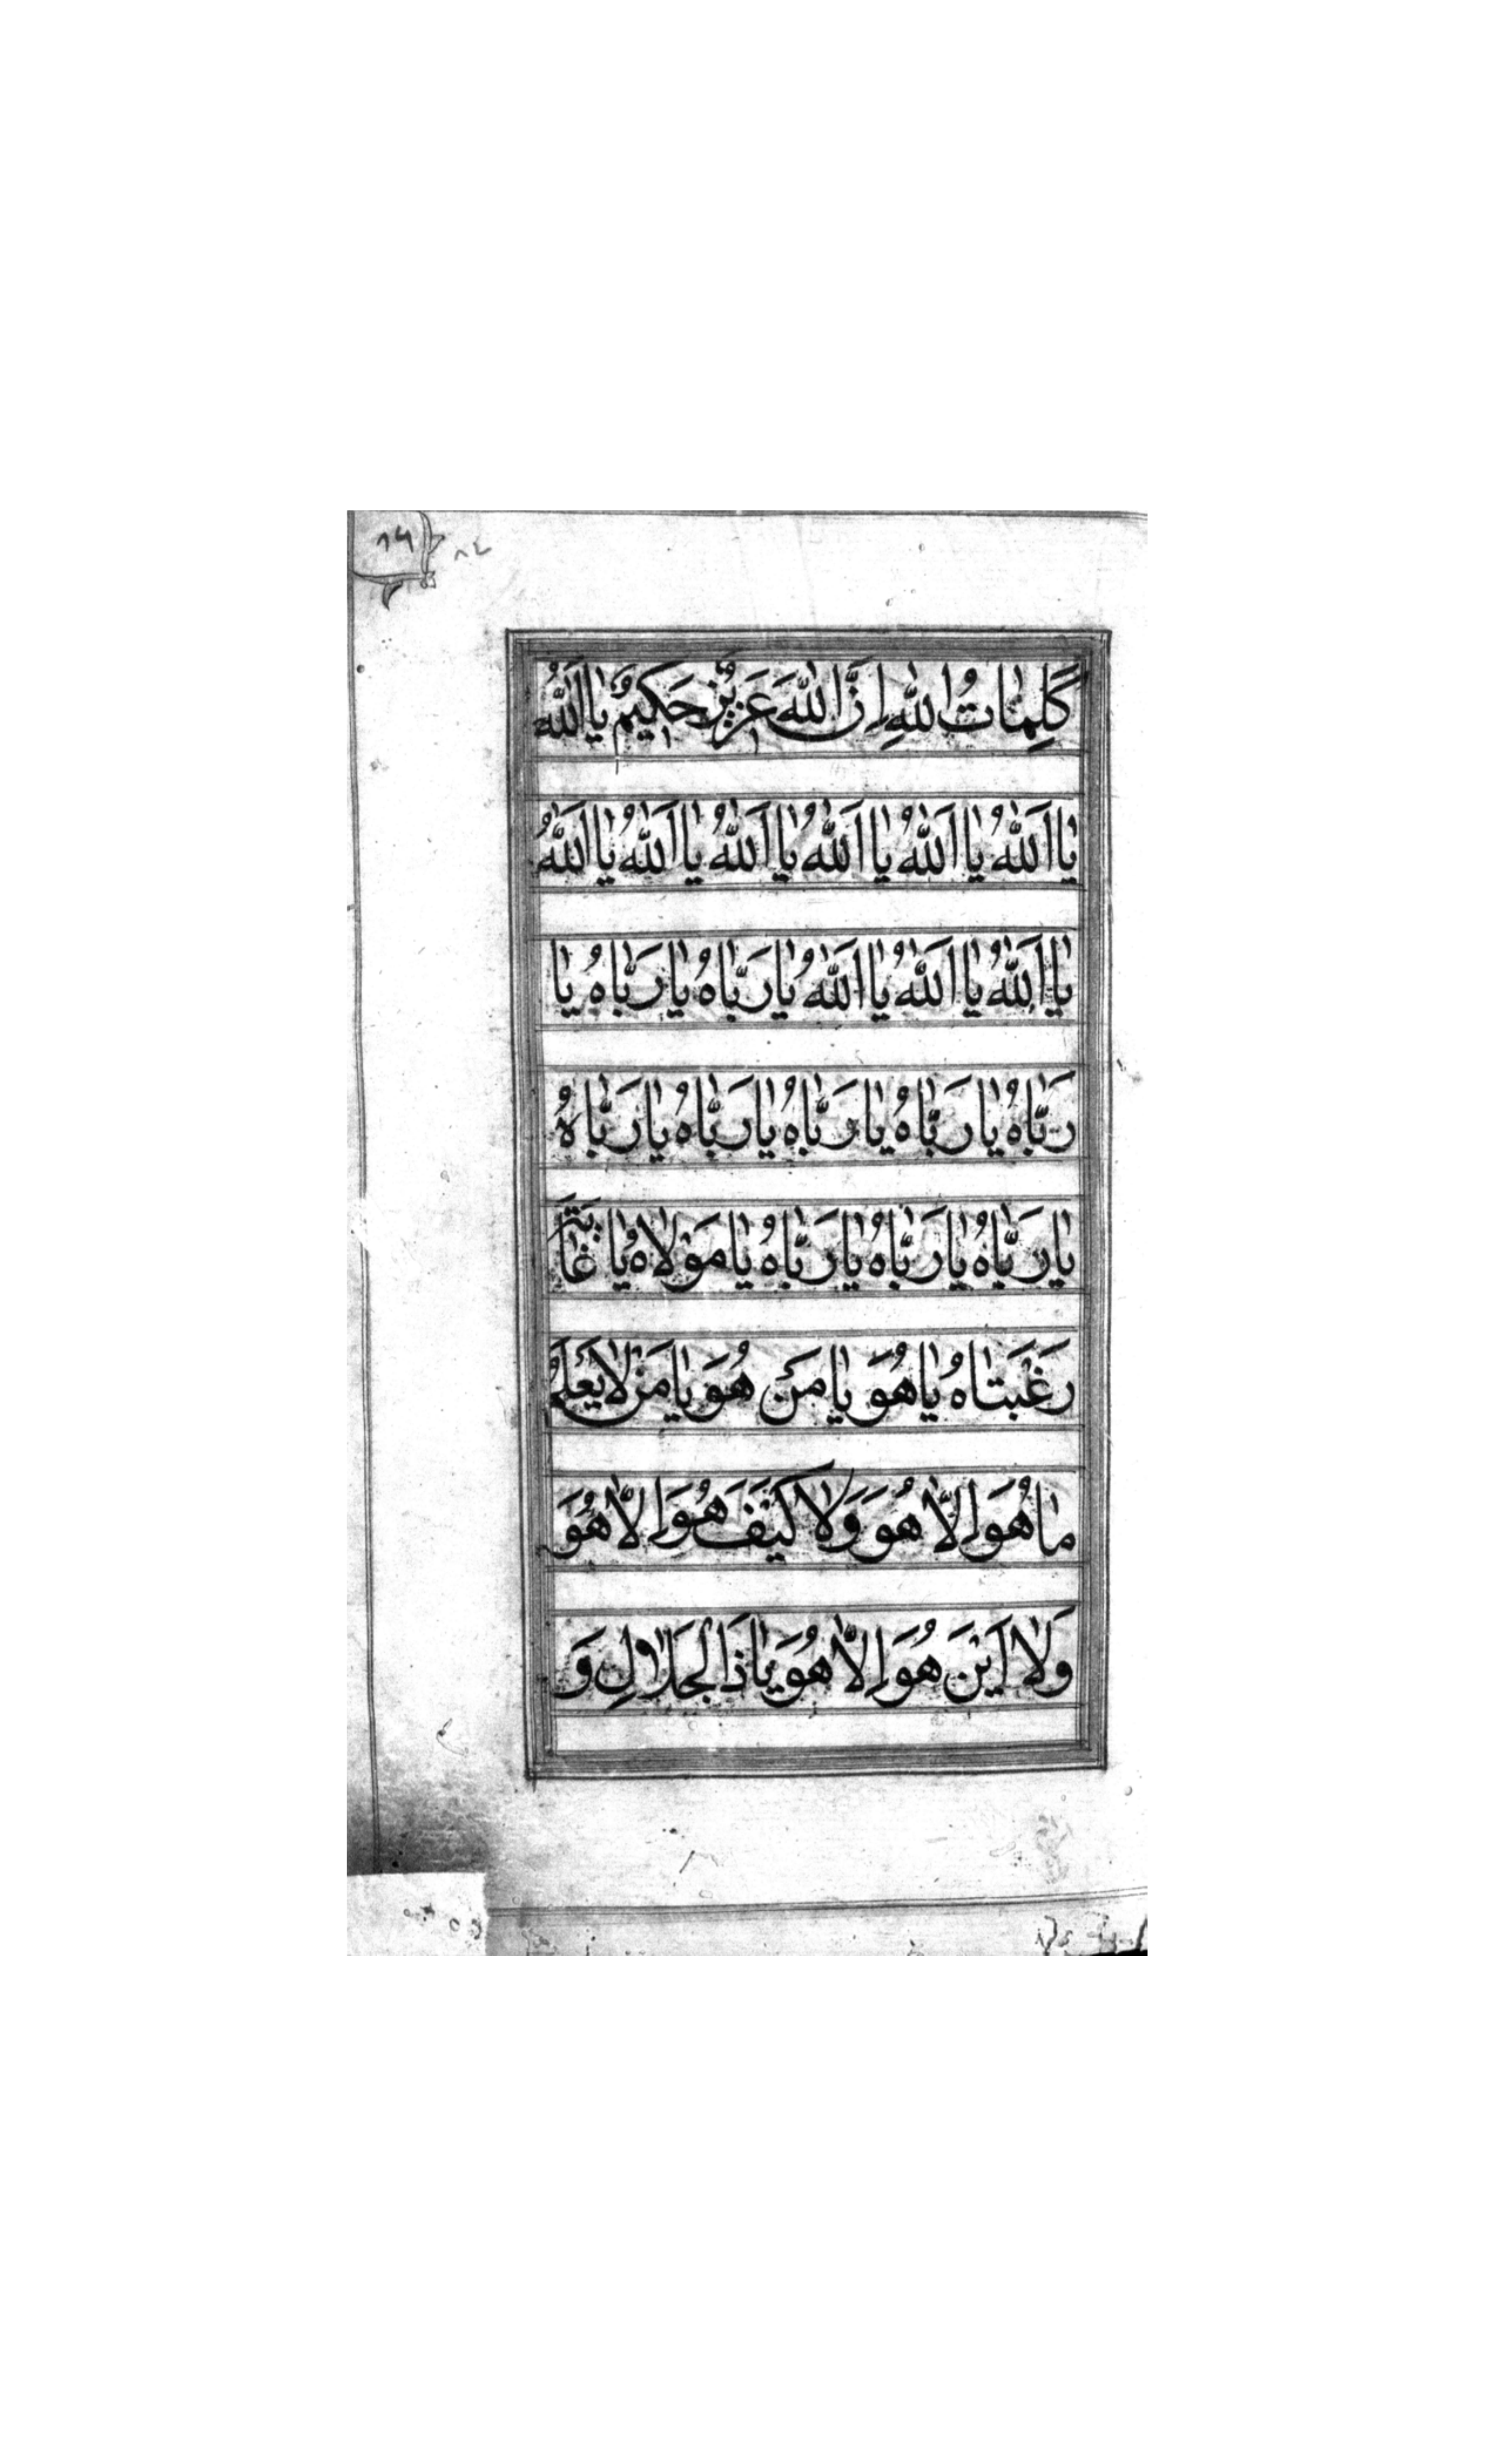 كَلِمٰاتُ اللهِ اِنَّ اللهَ عَزيزٌ حَكيمٌ يٰا اَللهُ
يٰا اَللهُ يٰا اَللهُ يٰا اَللهُ يٰا اَللهُ يٰا اَللهُ يٰا اَللهُ
يٰا اَللهُ يٰا اَللهُ يٰا اَللهُ يٰا رَبّٰاهُ يٰا رَبّٰاهُ يٰا
رَبّٰاهُ يٰا رَبّٰاهُ يٰا رَبّٰاهُ يٰا رَبّٰاهُ يٰا رَبّٰاهُ
يٰا رَبّٰاهُ يٰا رَبّٰاهُ يٰا رَبّٰاهُ يٰا مَوْلاٰهُ يٰا غٰايَةَ
رَغْبَتٰاهُ يٰا هُوَ يٰا مَنْ هُوَ يٰا مَنْ لاٰ يَعْلَمُ
مٰا هُوَ اِلاّٰ هُوَ وَلاٰ كَيْفَ هُوَ اِلاّٰ هُوَ
وَلاٰ اَيْنَ هُوَ اِلاّٰ هُوَ يٰا ذَا الْجَلاٰلِ وَ